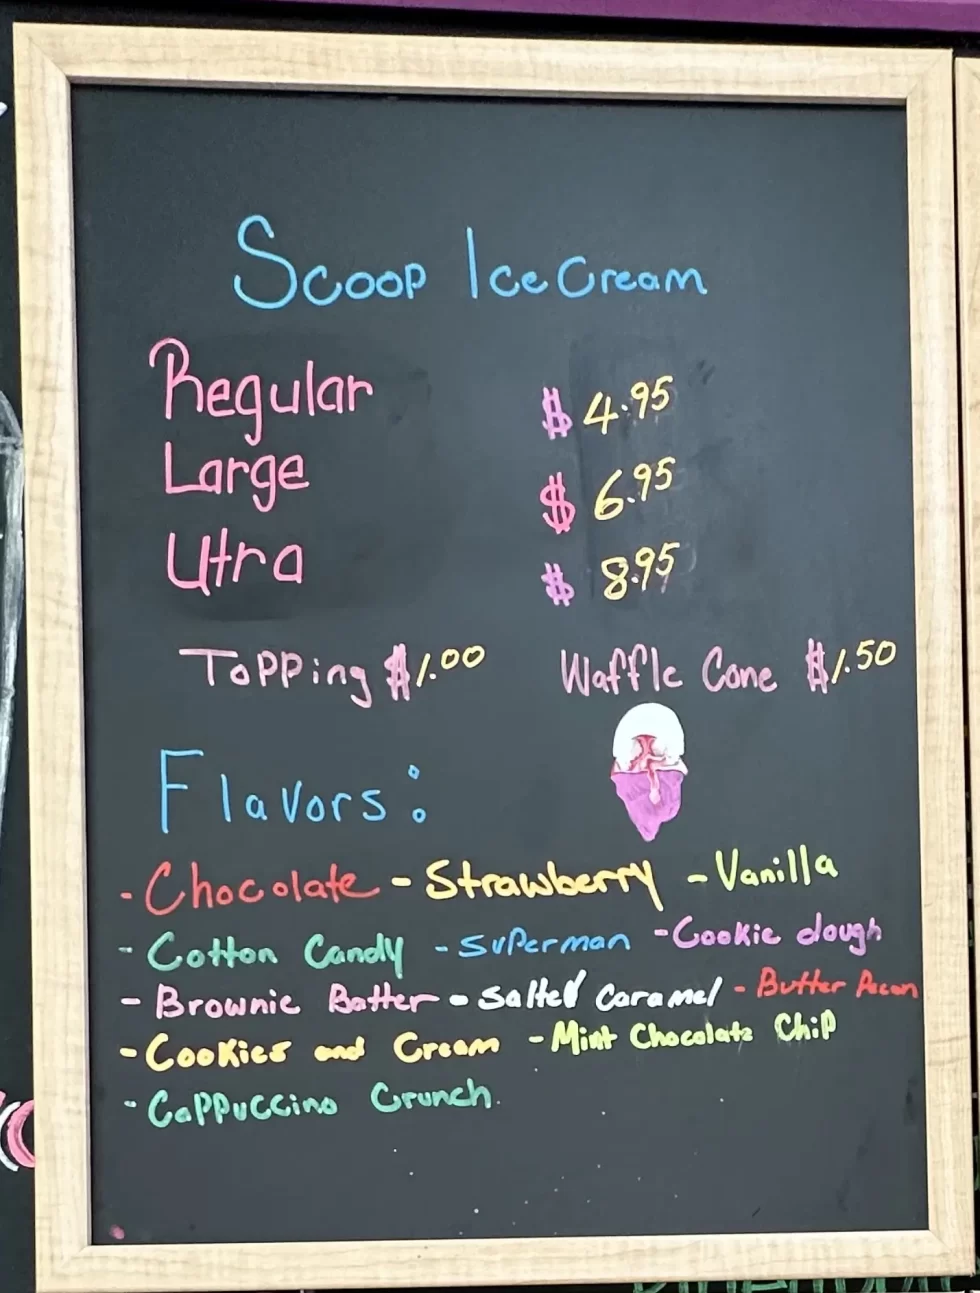 Scoop Ice Cream
Regular $ 4.95
Large $ 6.95
Utra $ 8.95
Topping $1.00 Waffle Cone $1.50
Flavors:
- Chocolate - Strawberry - Vanilla
- Cotton Candy - Superman - Cookie dough
- Brownie Batter - Salted Caramel - Butter Pecan
- Cookies and Cream - Mint Chocolate Chip
- Cappuccino Crunch